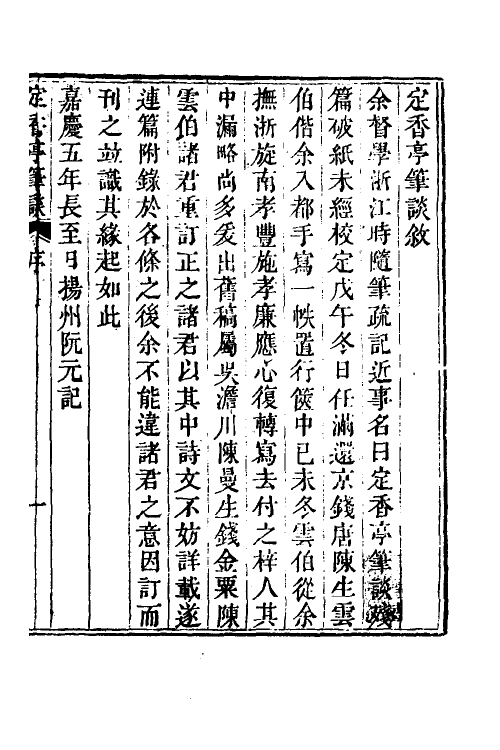 定香亭筆談敘
余督學浙江時隨筆疏記近事名曰定香亭筆談殘
篇破紙未經校定戊午冬日任滿還京錢唐陳生雲
伯偕余入都手寫一帙置行篋中已未冬雲伯從余
撫浙旋南孝豐施孝廉應心復轉寫去付之梓人其
中漏略尚多爰出舊稿屬吳澹川陳曼生錢金粟陳
雲伯諸君重訂正之諸君以其中詩文不妨詳載遂
連篇附錄於各條之後余不能違諸君之意因訂而
刊之並識其緣起如此
嘉慶五年長至日揚州阮元記
定香亭筆談 序 一